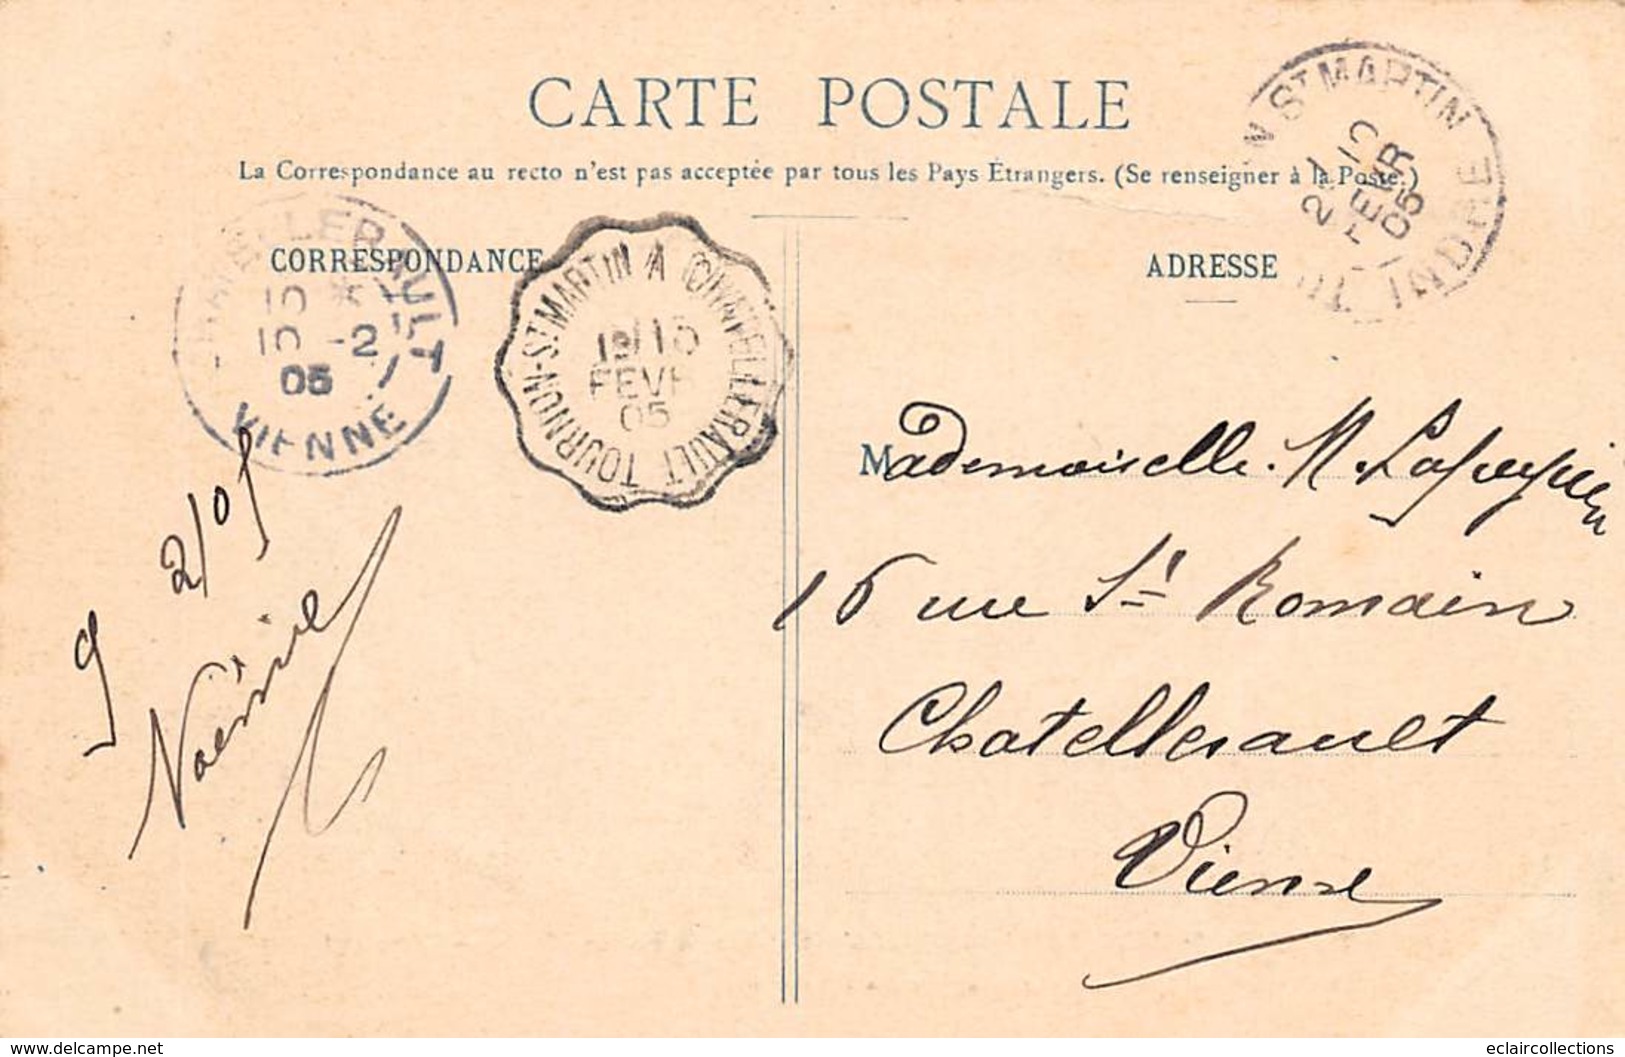 CARTE POSTALE
La Correspondance au recto n'est pas acceptée par tous les Pays Étrangers. (Se renseigner à la Poste.)
CORRESPONDANCE
ADRESSE
N ST MARTIN
INDRE
FEVR
05
LLERAULT
10
10 -2
05
VIENNE
TOURNON-ST MARTIN A CHATELLERAULT
FEVR
05
9 2/05
Noémie
Mademoiselle. M.
16 rue St Romain
Chatellerault
Vienne
www.delcampe.net
eclaircollections